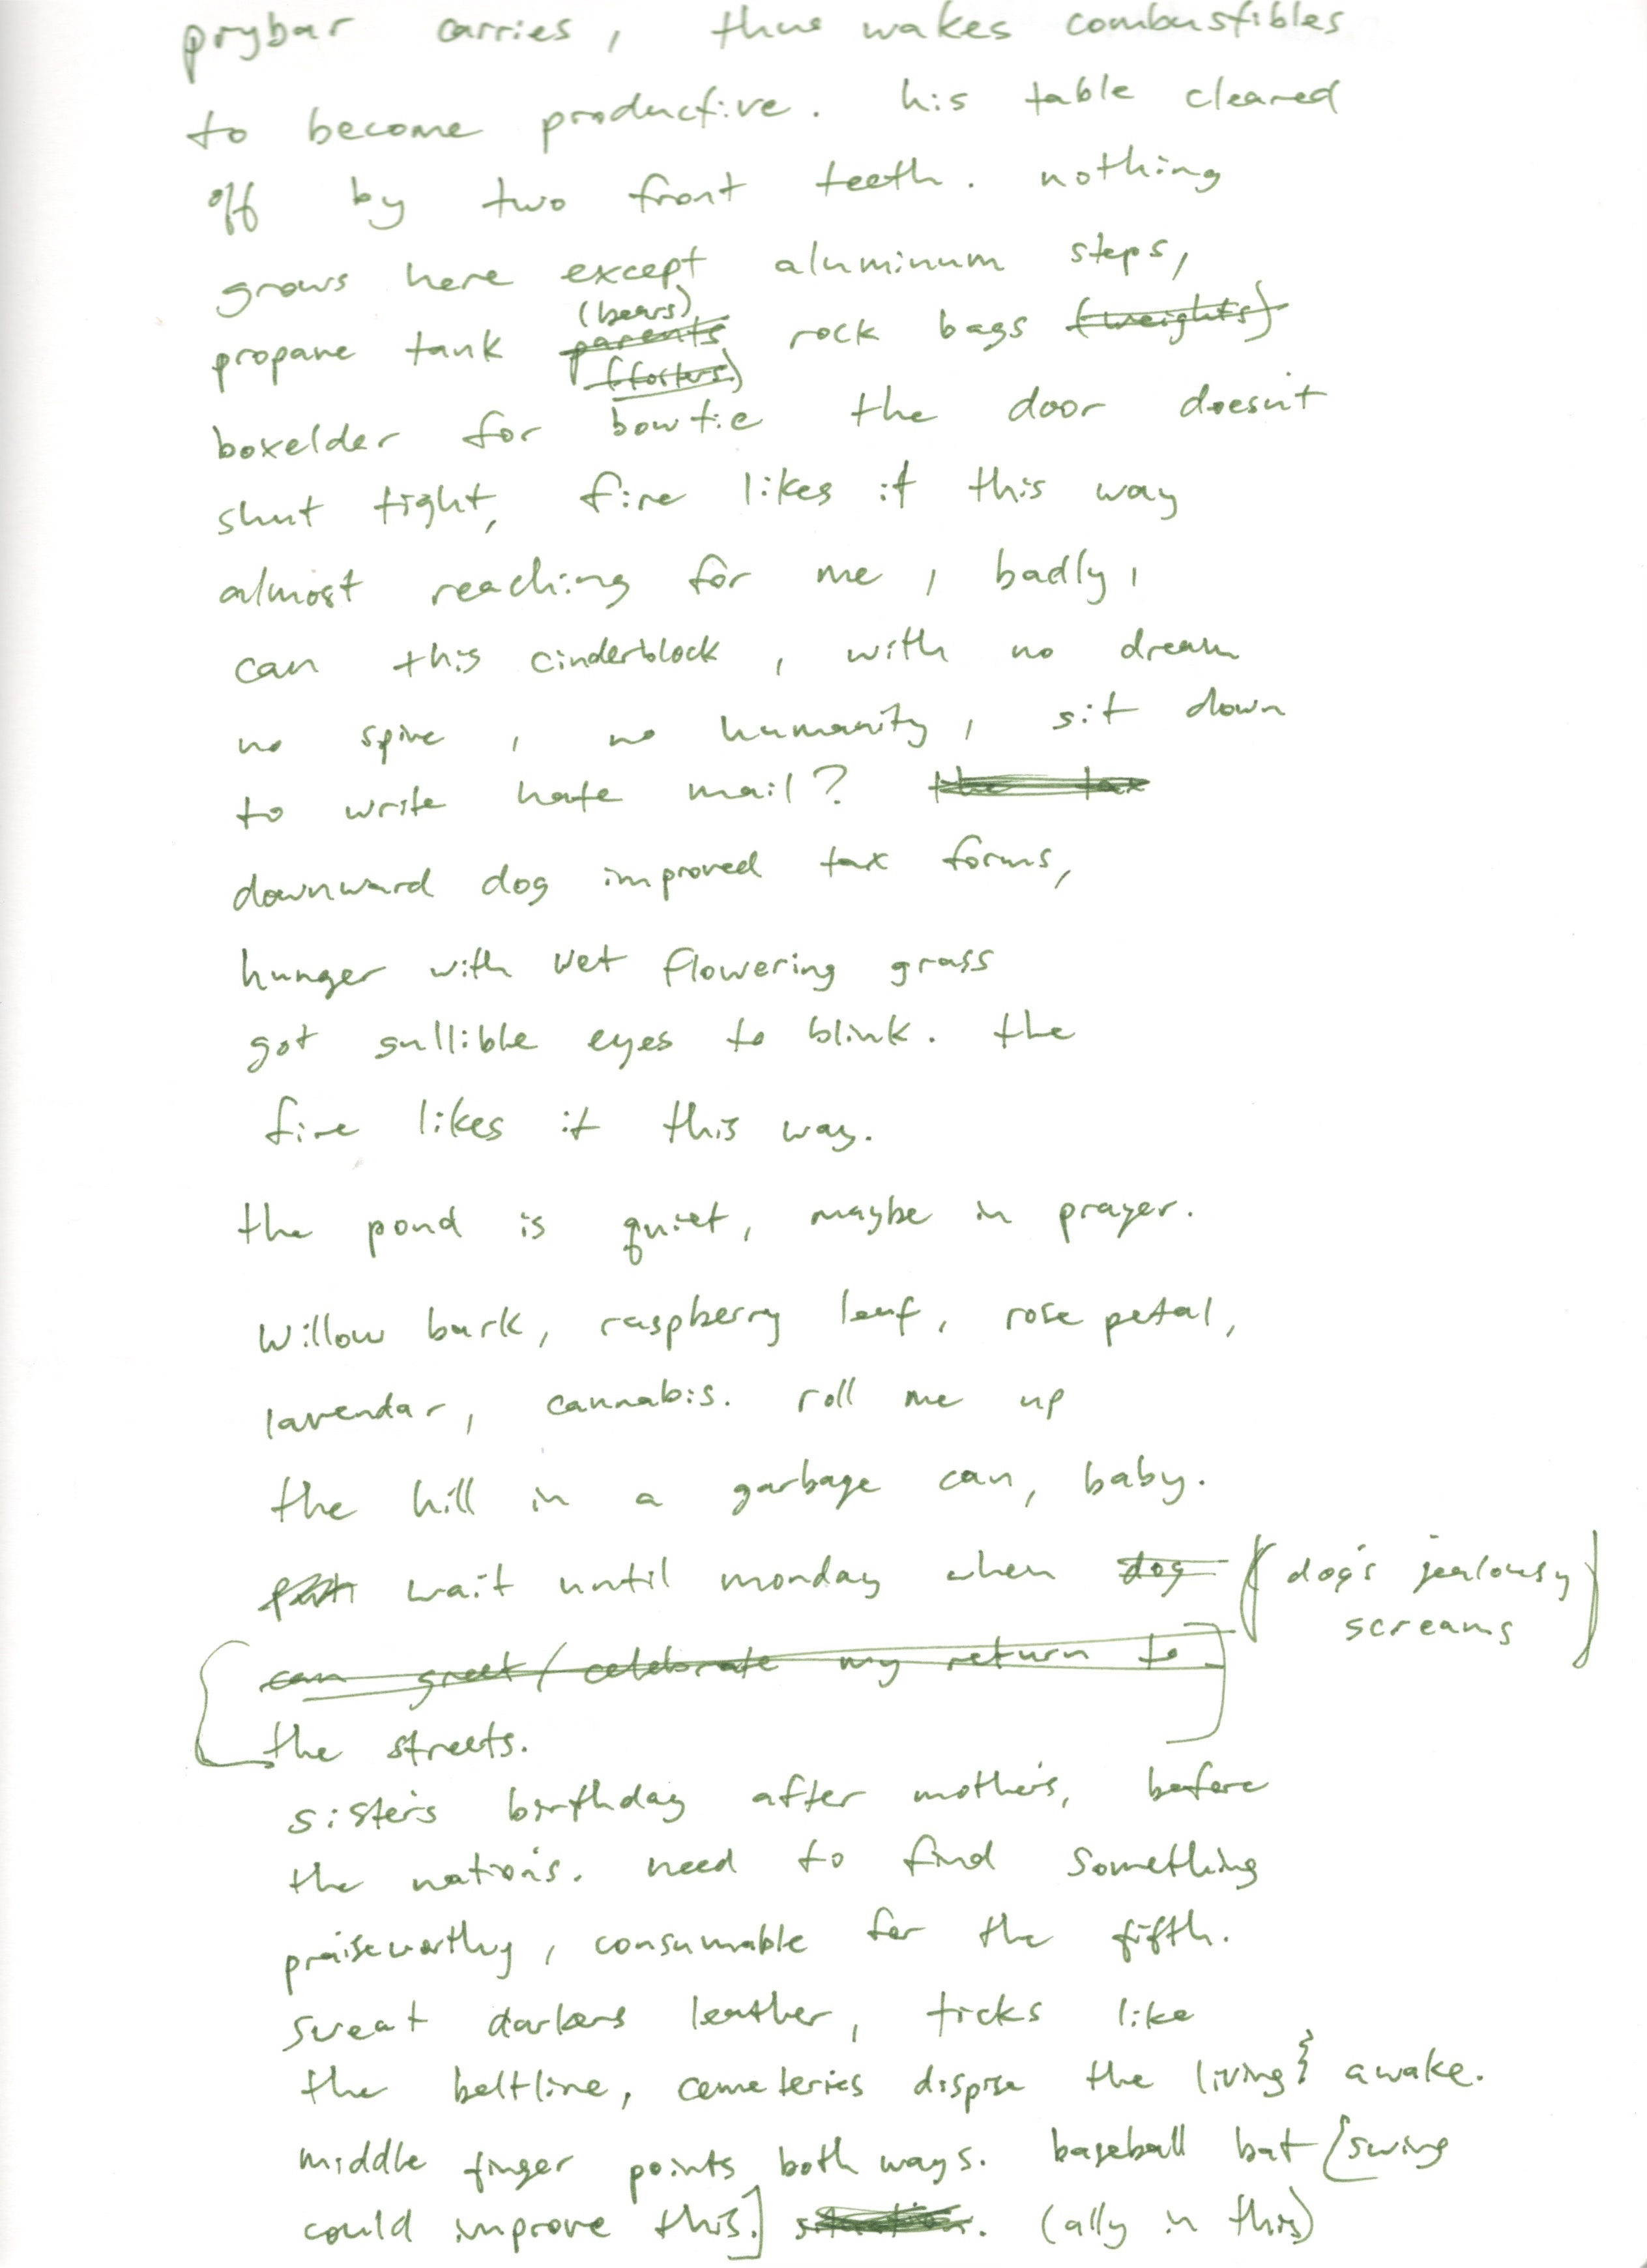 prybar carries, thus wakes combustibles
to become productive. his table cleared
off by two front teeth. nothing
grows here except aluminum steps,
(bears)
propane tank parents rock bags (weights)
(fosters)
boxelder for bowtie the door doesn't
shut tight, fire likes it this way
almost reaching for me, badly,
can this cinderblock, with no dream
no spine, no humanity, sit down
to write hate mail? the tax
downward dog improved tax forms,
hunger with wet flowering grass
got gullible eyes to blink. the
fire likes it this way.
the pond is quiet, maybe in prayer.
willow bark, raspberry leaf, rose petal,
lavendar, cannabis. roll me up
the hill in a garbage can, baby.
wait until monday when dog (dog's jealousy
screams)
can greet/celebrate my return to
the streets.
sister's birthday after mother's, before
the nation's. need to find something
praiseworthy, consumable for the fifth.
sweat darkens leather, ticks like
the beltline, cemeteries dispise the living & awake.
middle finger points both ways. baseball bat [swing
could improve this.] situation. (ally in this)